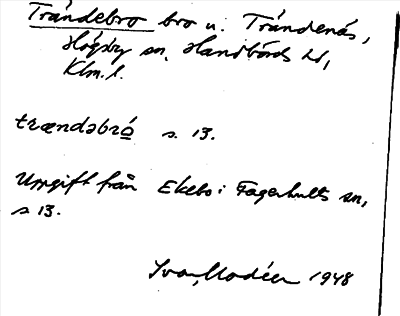 Trändebro bro u. Trändenäs,
Högsby sn, Handbörds hd,
Klm. l.
trændəbró s. 13.
Uppgift från Ekebo i Fagerhults sn,
s 13.
Ivar Modéer 1948